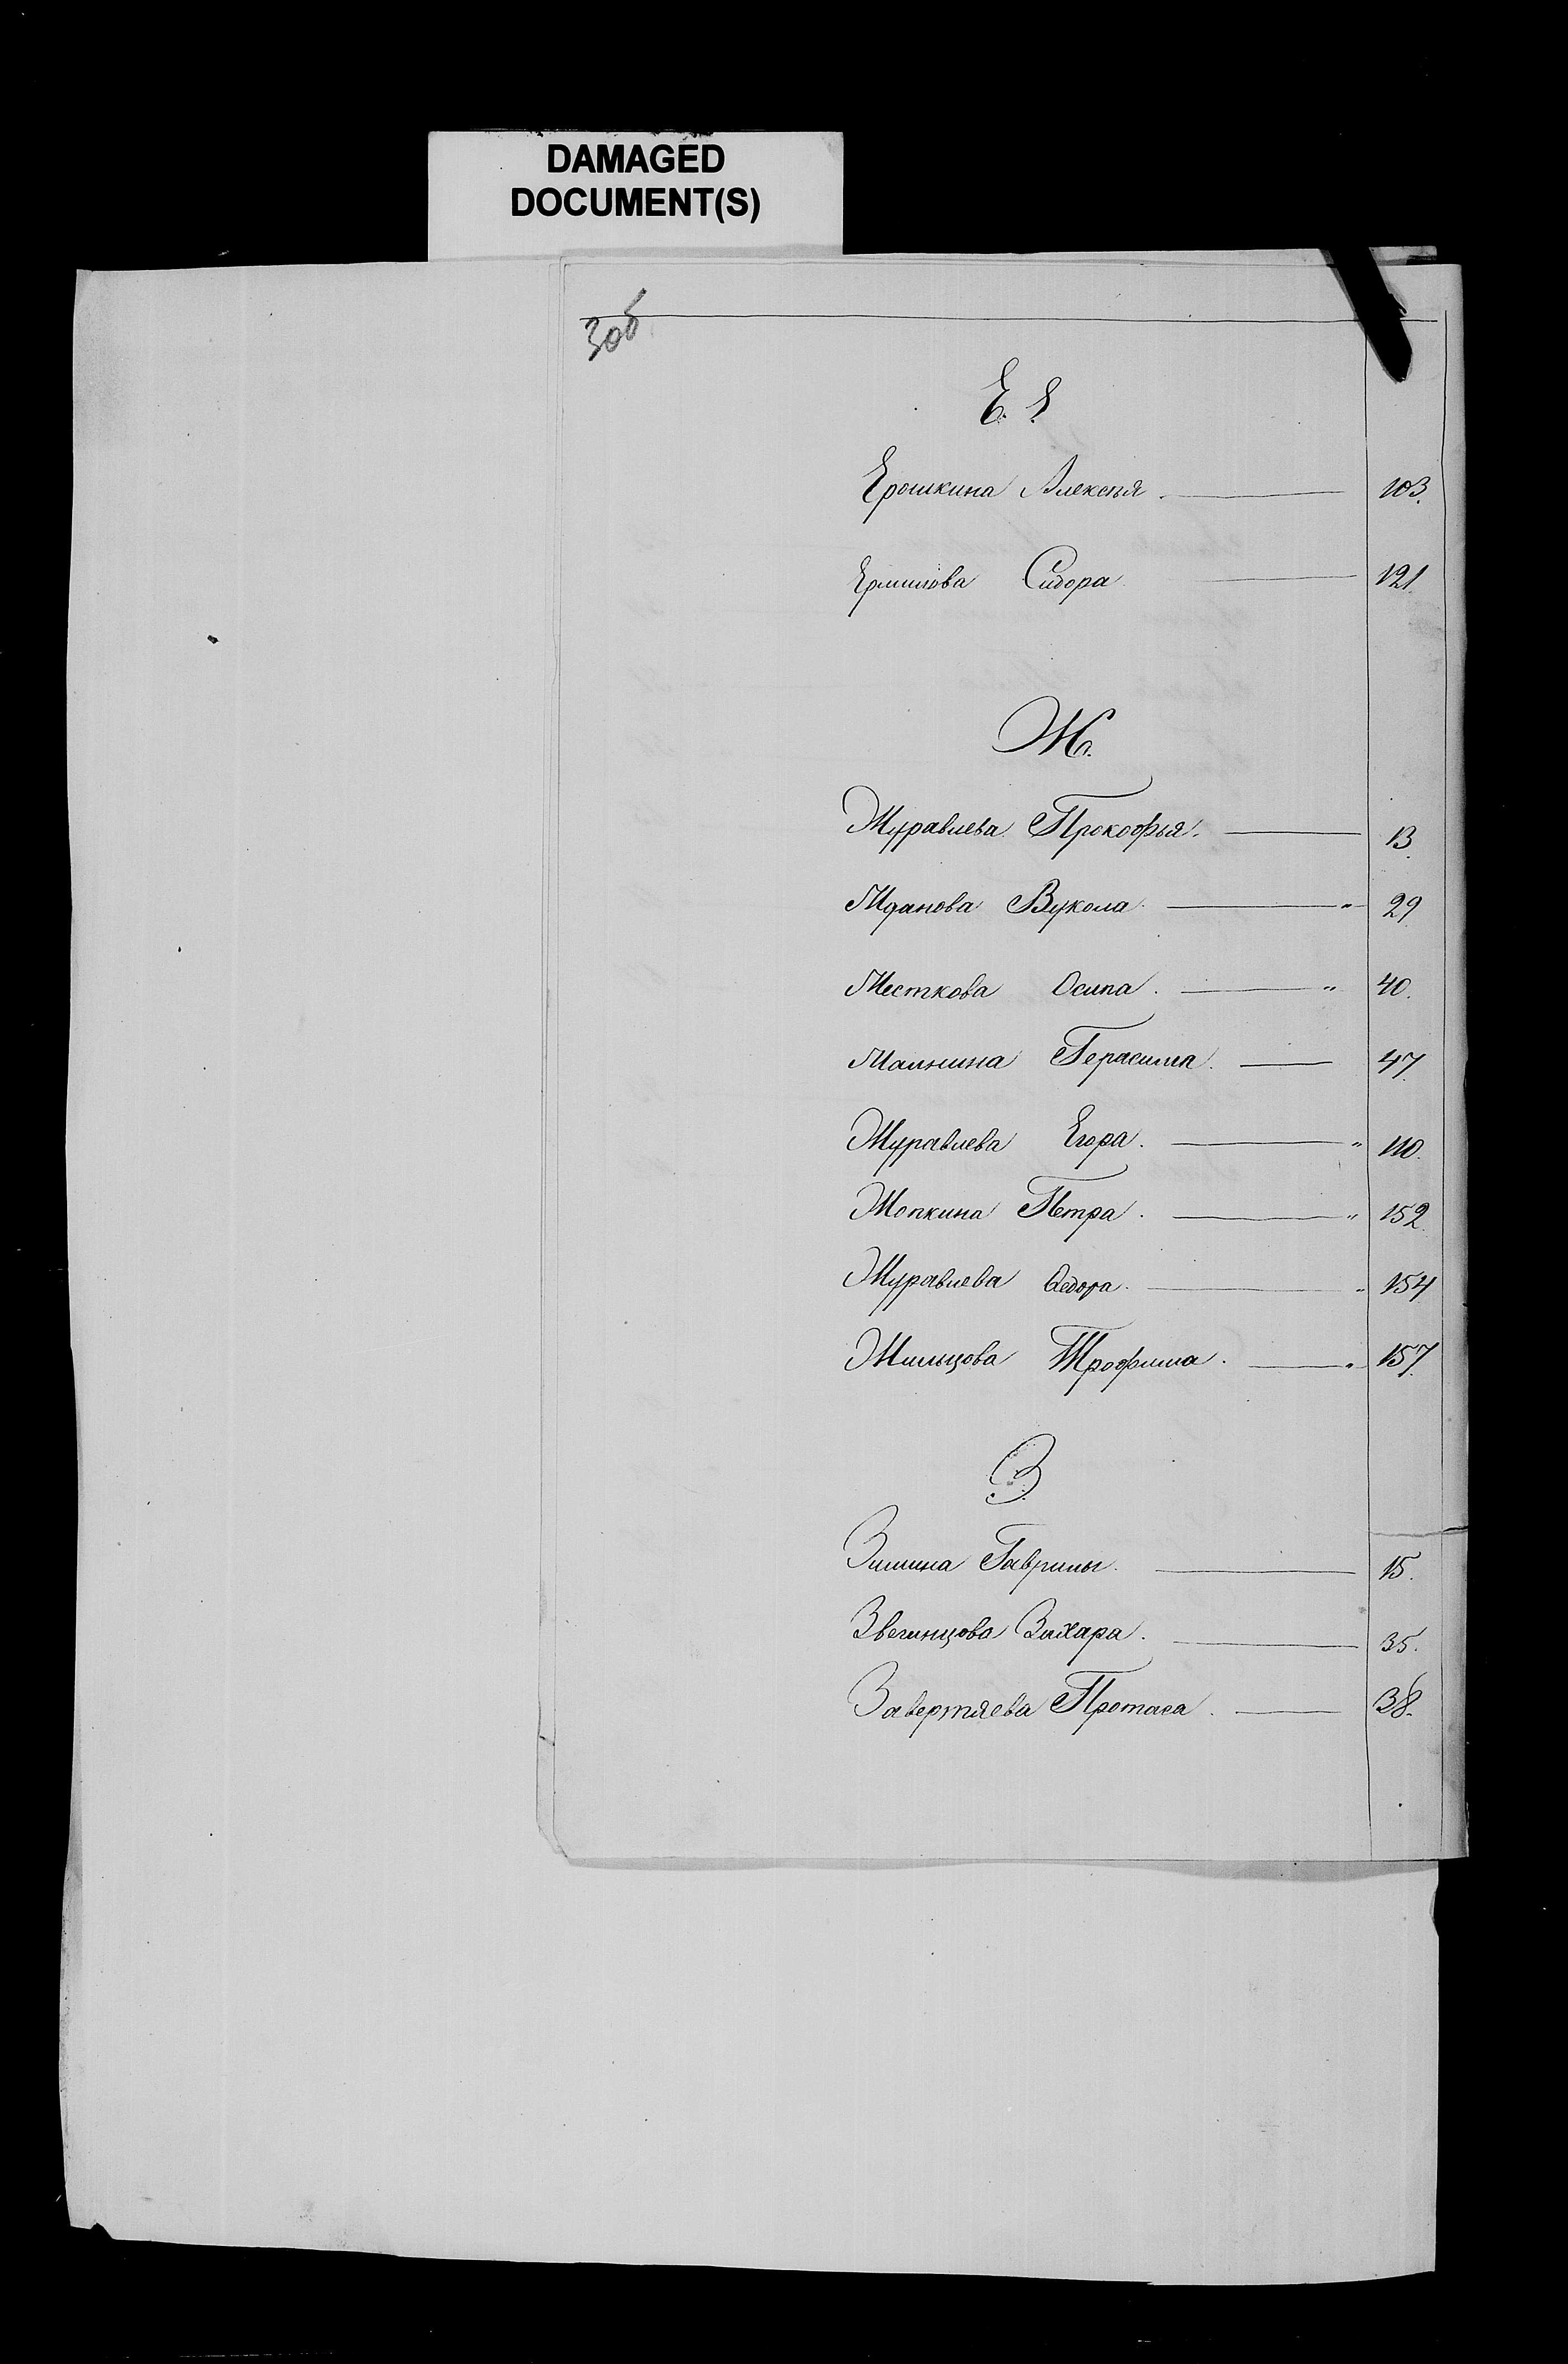 DAMAGED
DOCUMENT(S)
3об
Е. Е
Ерошкина Алексѣя. 103.
Ермилова Сидора 121.
Ж.
Журавлева Прокофья. 13.
Жданова Вукола. " 29
Жесткова Осипа. " 40.
Жалнина Герасима. 47.
Журавлева Егора. " 110.
Жопкина Петра. " 152.
Журавлева Ѳедора. " 154
Жильцова Трофима. " 157.
З.
Зимина Гаврилы. 15.
Звегинцова Захара. 35.
Завертяева Протаса. 38.